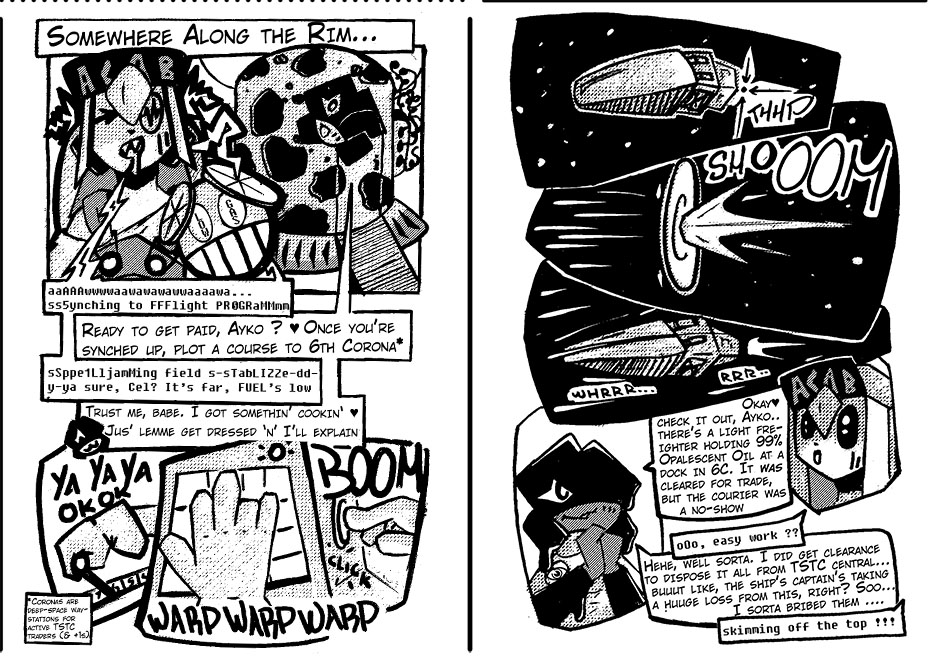 Somewhere Along the Rim...
ACAB
aaAAAwwwwaawawawauwaaaawa...
ss5ynching to FFFlight PR0GRaMMmm
Ready to get paid, Ayko ? ♥ Once you're
synched up, plot a course to 6th Corona*
sSppe1LljamMing field s-sTabLIZZe-dd-
y-ya sure, Cel? It's far, FUEL's low
Trust me, babe. I got somethin' cookin' ♥
Jus' lemme get dressed 'n' I'll explain
YA YA YA
OK OK
BOOM
CLICK
WARP WARP WARP
*Coronas are
deep-space way-
stations for
active TSTC
traders (& +1s)
THHP
SHOOOOM
WHRRR...
RRR..
ACAB
Okay♥
check it out, Ayko..
there's a light fre-
ighter holding 99%
Opalescent Oil at a
dock in 6C. It was
cleared for trade,
but the courier was
a no-show
oOo, easy work ??
Hehe, well sorta. I did get clearance
to dispose it all from TSTC central...
buuut like, the ship's captain's taking
a huuge loss from this, right? Soo...
I sorta bribed them ....
skimming off the top !!!